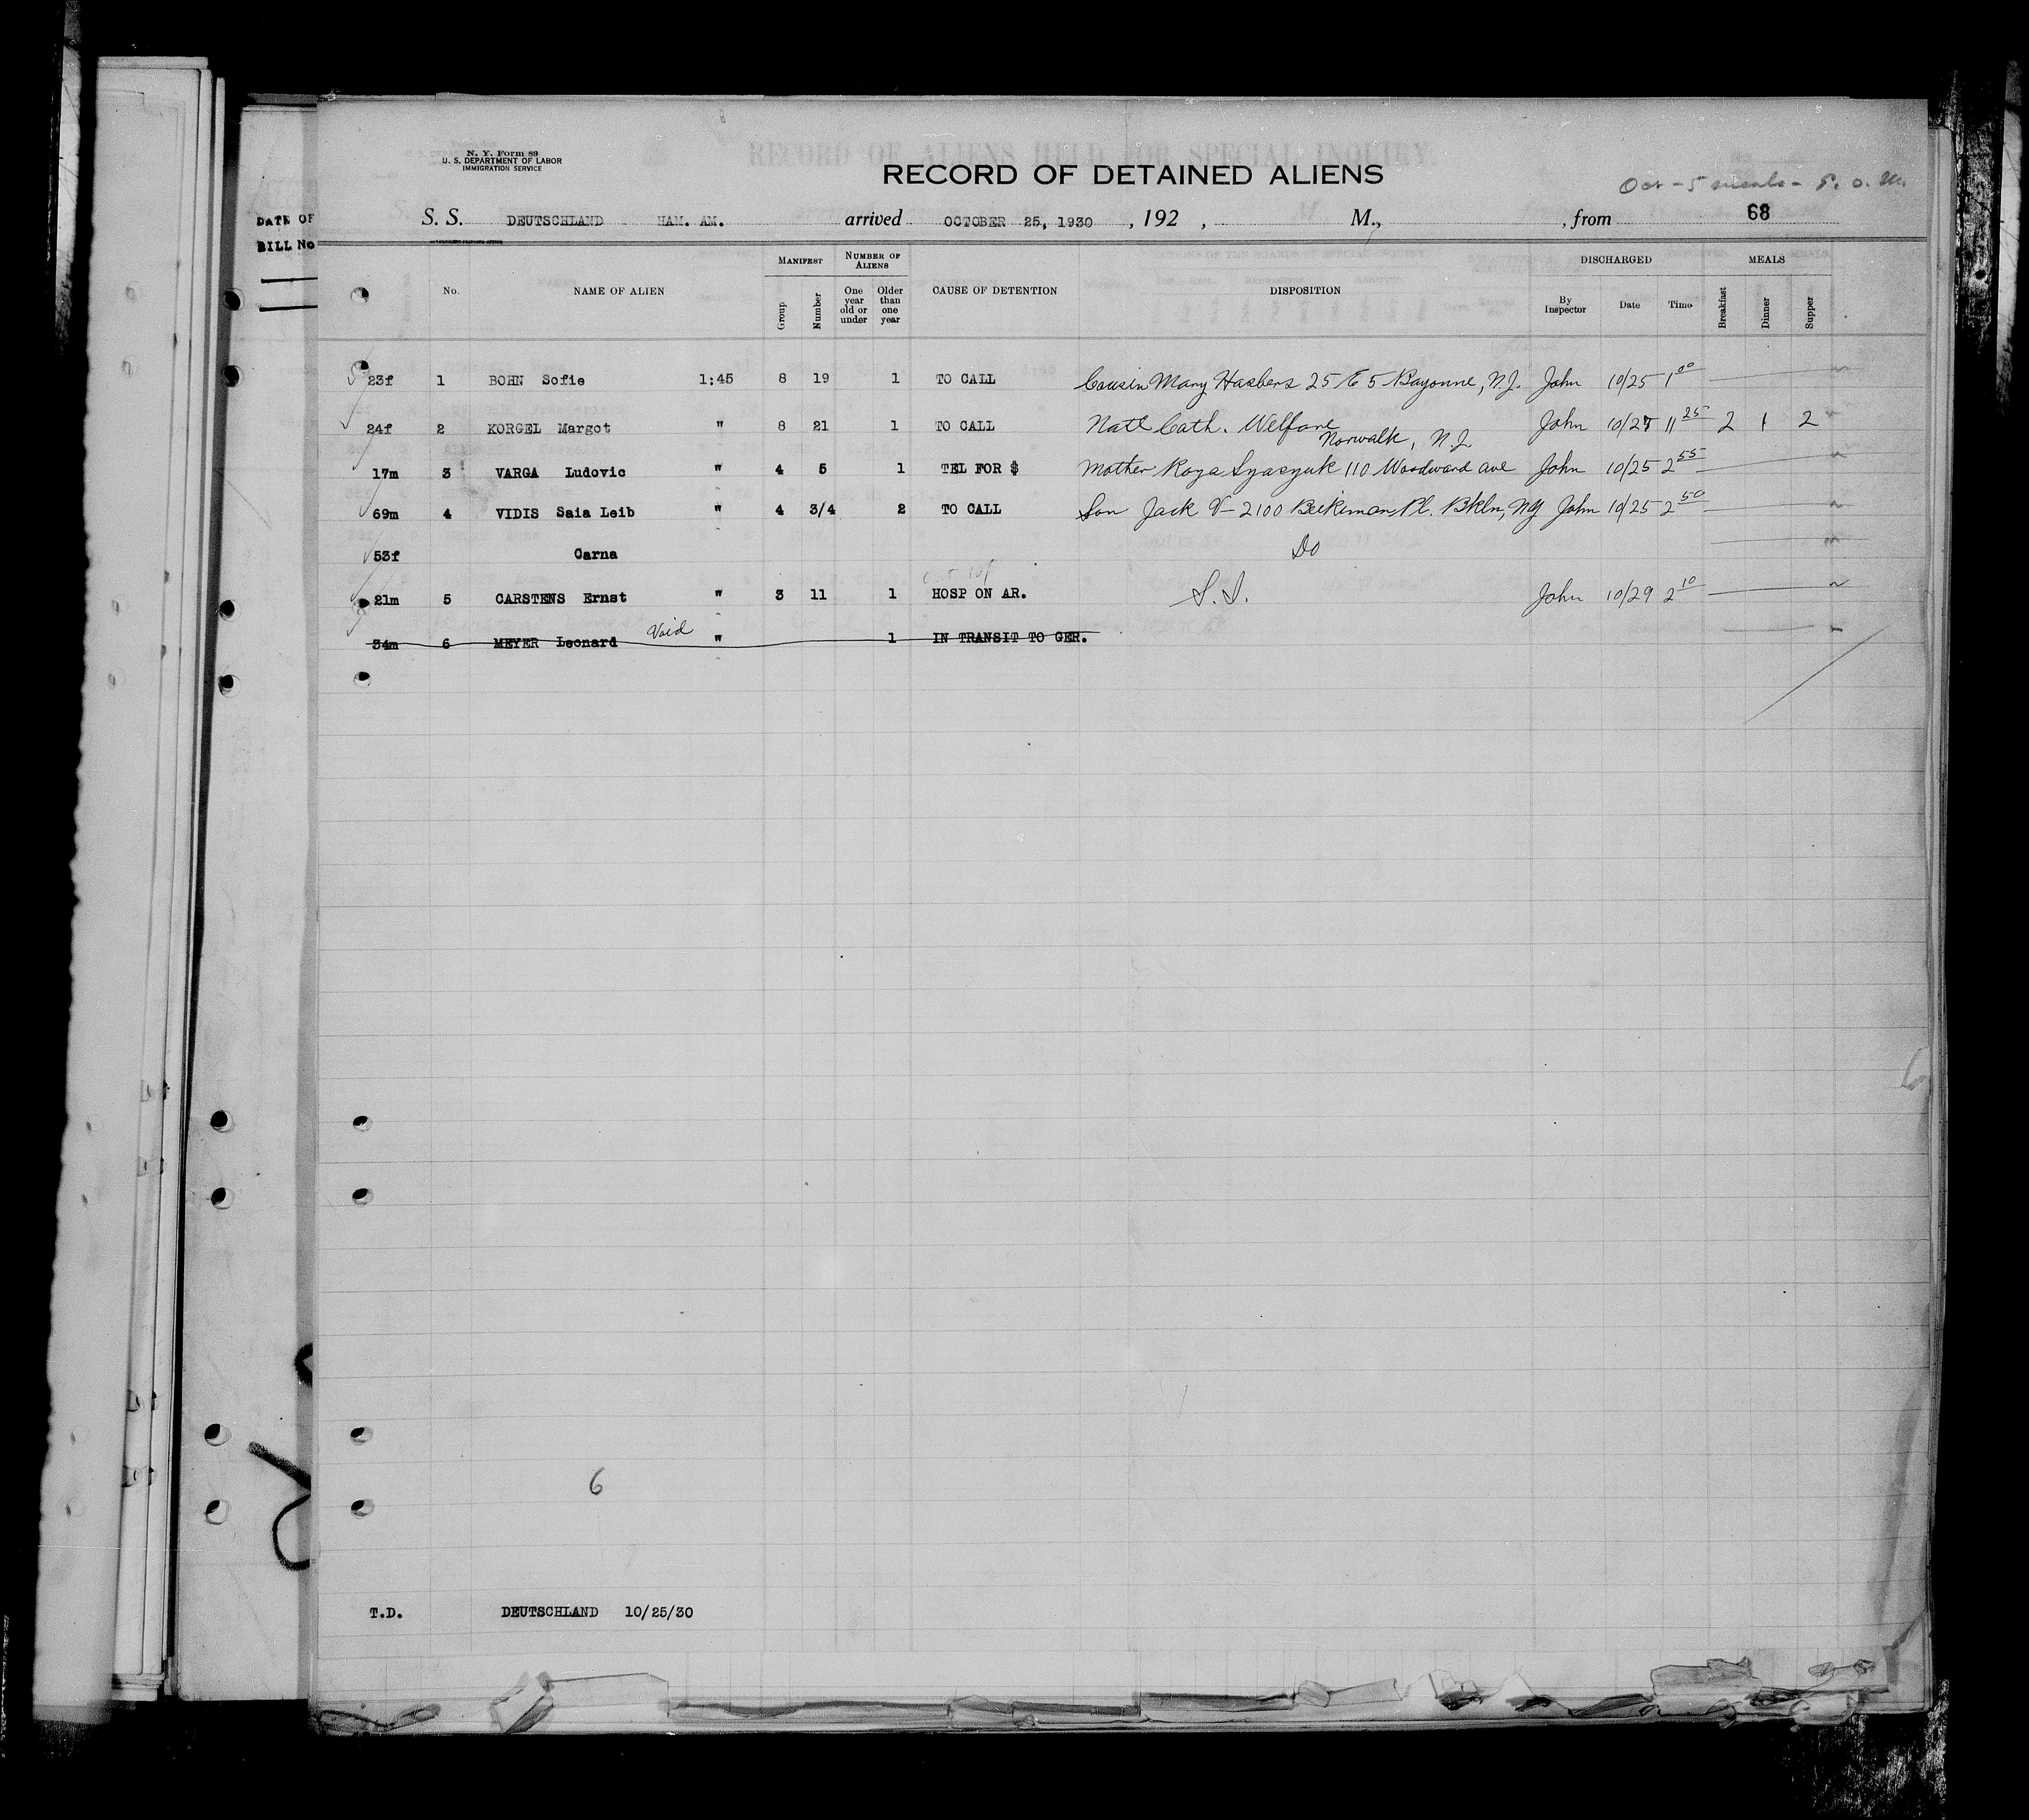 N. Y. Form 89
U. S. DEPARTMENT OF LABOR
IMMIGRATION SERVICE
RECORD OF ALIENS HELD FOR SPECIAL INQUIRY.
RECORD OF DETAINED ALIENS
Oct - 5 meals -
DATE OF
BILL No
S. S. DEUTSCHLAND HAM. AM. arrived OCTOBER 25, 1930 , 192 , M., , from 68
MANIFEST NUMBER OF ALIENS DISCHARGED MEALS
No. NAME OF ALIEN Group Number One year old or under Older than one year CAUSE OF DETENTION DISPOSITION By Inspector Date Time Breakfast Dinner Supper
23f 1 BOHN Sofie 1:45 8 19 1 TO CALL Cousin Mary Hasbers 25 E 5 Bayonne, N.J. John 10/25 1 00
24f 2 KORGEL Margot " 8 21 1 TO CALL Natl Cath. Welfare John 10/27 11 25 2 1 2
Norwalk, N.J.
17m 3 VARGA Ludovic " 4 5 1 TEL FOR $ Mother 110 Woodward ave John 10/25 2 55
69m 4 VIDIS Saia Leib " 4 3/4 2 TO CALL Son Jack V- 2100 Beikman Pl. Bkln, NY John 10/25 2 50
53f Carna Do
21m 5 CARSTENS Ernst " 3 11 1 HOSP ON AR. S.I. John 10/29 2 10
34m 6 MEYER Leonard Void " 1 IN TRANSIT TO GER.
6
T.D. DEUTSCHLAND 10/25/30